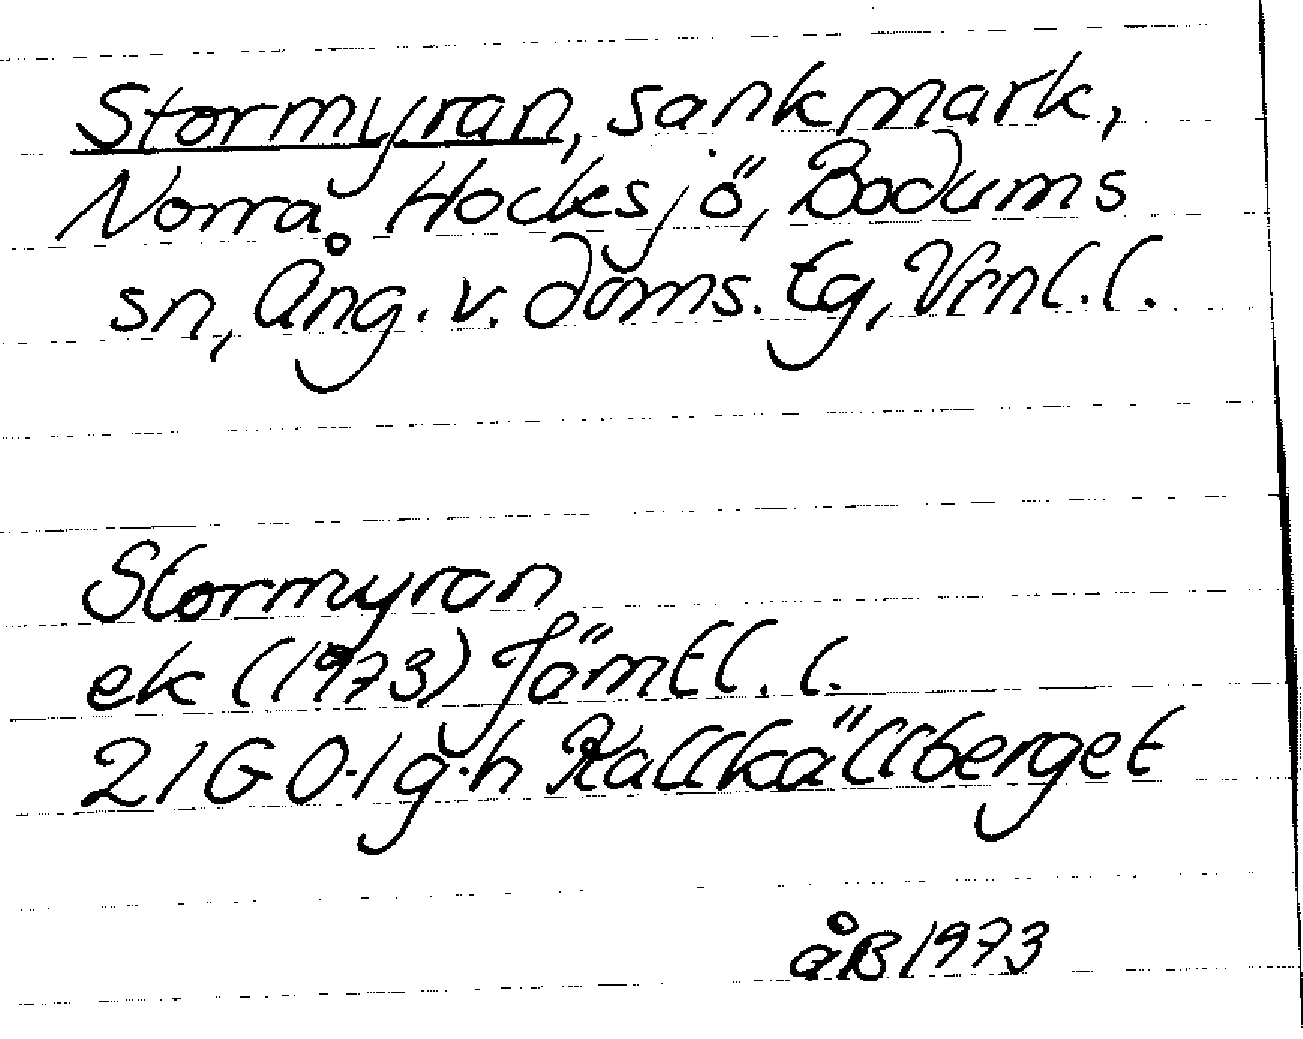 Stormyran, sankmark,
Norra Hocksjö, Bodums
sn, Ång. v. doms. tg, Vrnl. l.
Stormyran
ek (1973) Jämtl. l.
21G 0-1 g-h Kallkällberget
åB 1973